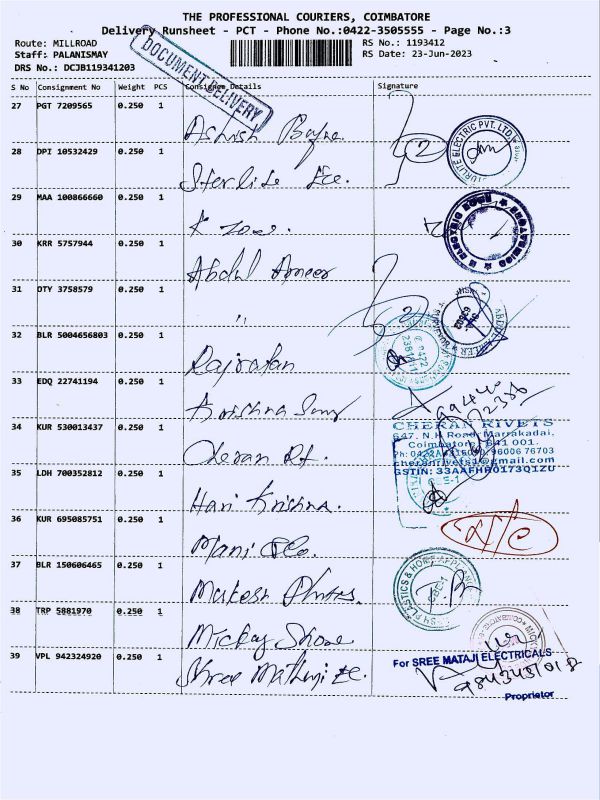 THE PROFESSIONAL COURIERS, COIMBATORE
Delivery Runsheet - PCT - Phone No.:0422-3505555 - Page No.:3
Route: MILLROAD
RS No.: 1193412
Staff: PALANISMAY
RS Date: 23-Jun-2023
DRS No.: DCJB119341203
DOCUMENT DELIVERY
S No Consignment No Weight PCS Consignee Details Signature
27 PGT 7209565 0.250 1
Ashish
28 DPI 10532429 0.250 1
Sterlite Ele.
29 MAA 100866660 0.250 1
30 KRR 5757944 0.250 1
Abdul Ameer
31 OTY 3758579 0.250 1
"
32 BLR 5004656803 0.250 1
Rajratan
33 EDQ 22741194 0.250 1
Krishna
34 KUR 530013437 0.250 1
Cheran Rt.
CHERAN RIVETS
647, N.H Road, Marrakadai,
Coimbatore - 641 001.
96006 76703
GSTIN: 33AAFHR0173Q1ZU
35 LDH 700352812 0.250 1
Hari Krishna.
36 KUR 695085751 0.250 1
Mani & Co.
37 BLR 150606465 0.250 1
38 TRP 5881970 0.250 1
Mickay Shoae
39 VPL 942324920 0.250 1
Shree Mathaji Ele.
For SREE MATAJI ELECTRICALS
Proprietor